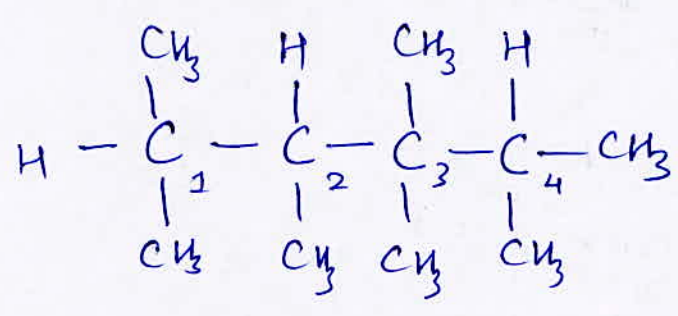 CH3 H CH3 H
H - C1 - C2 - C3 - C4 - CH3
CH3 CH3 CH3 CH3